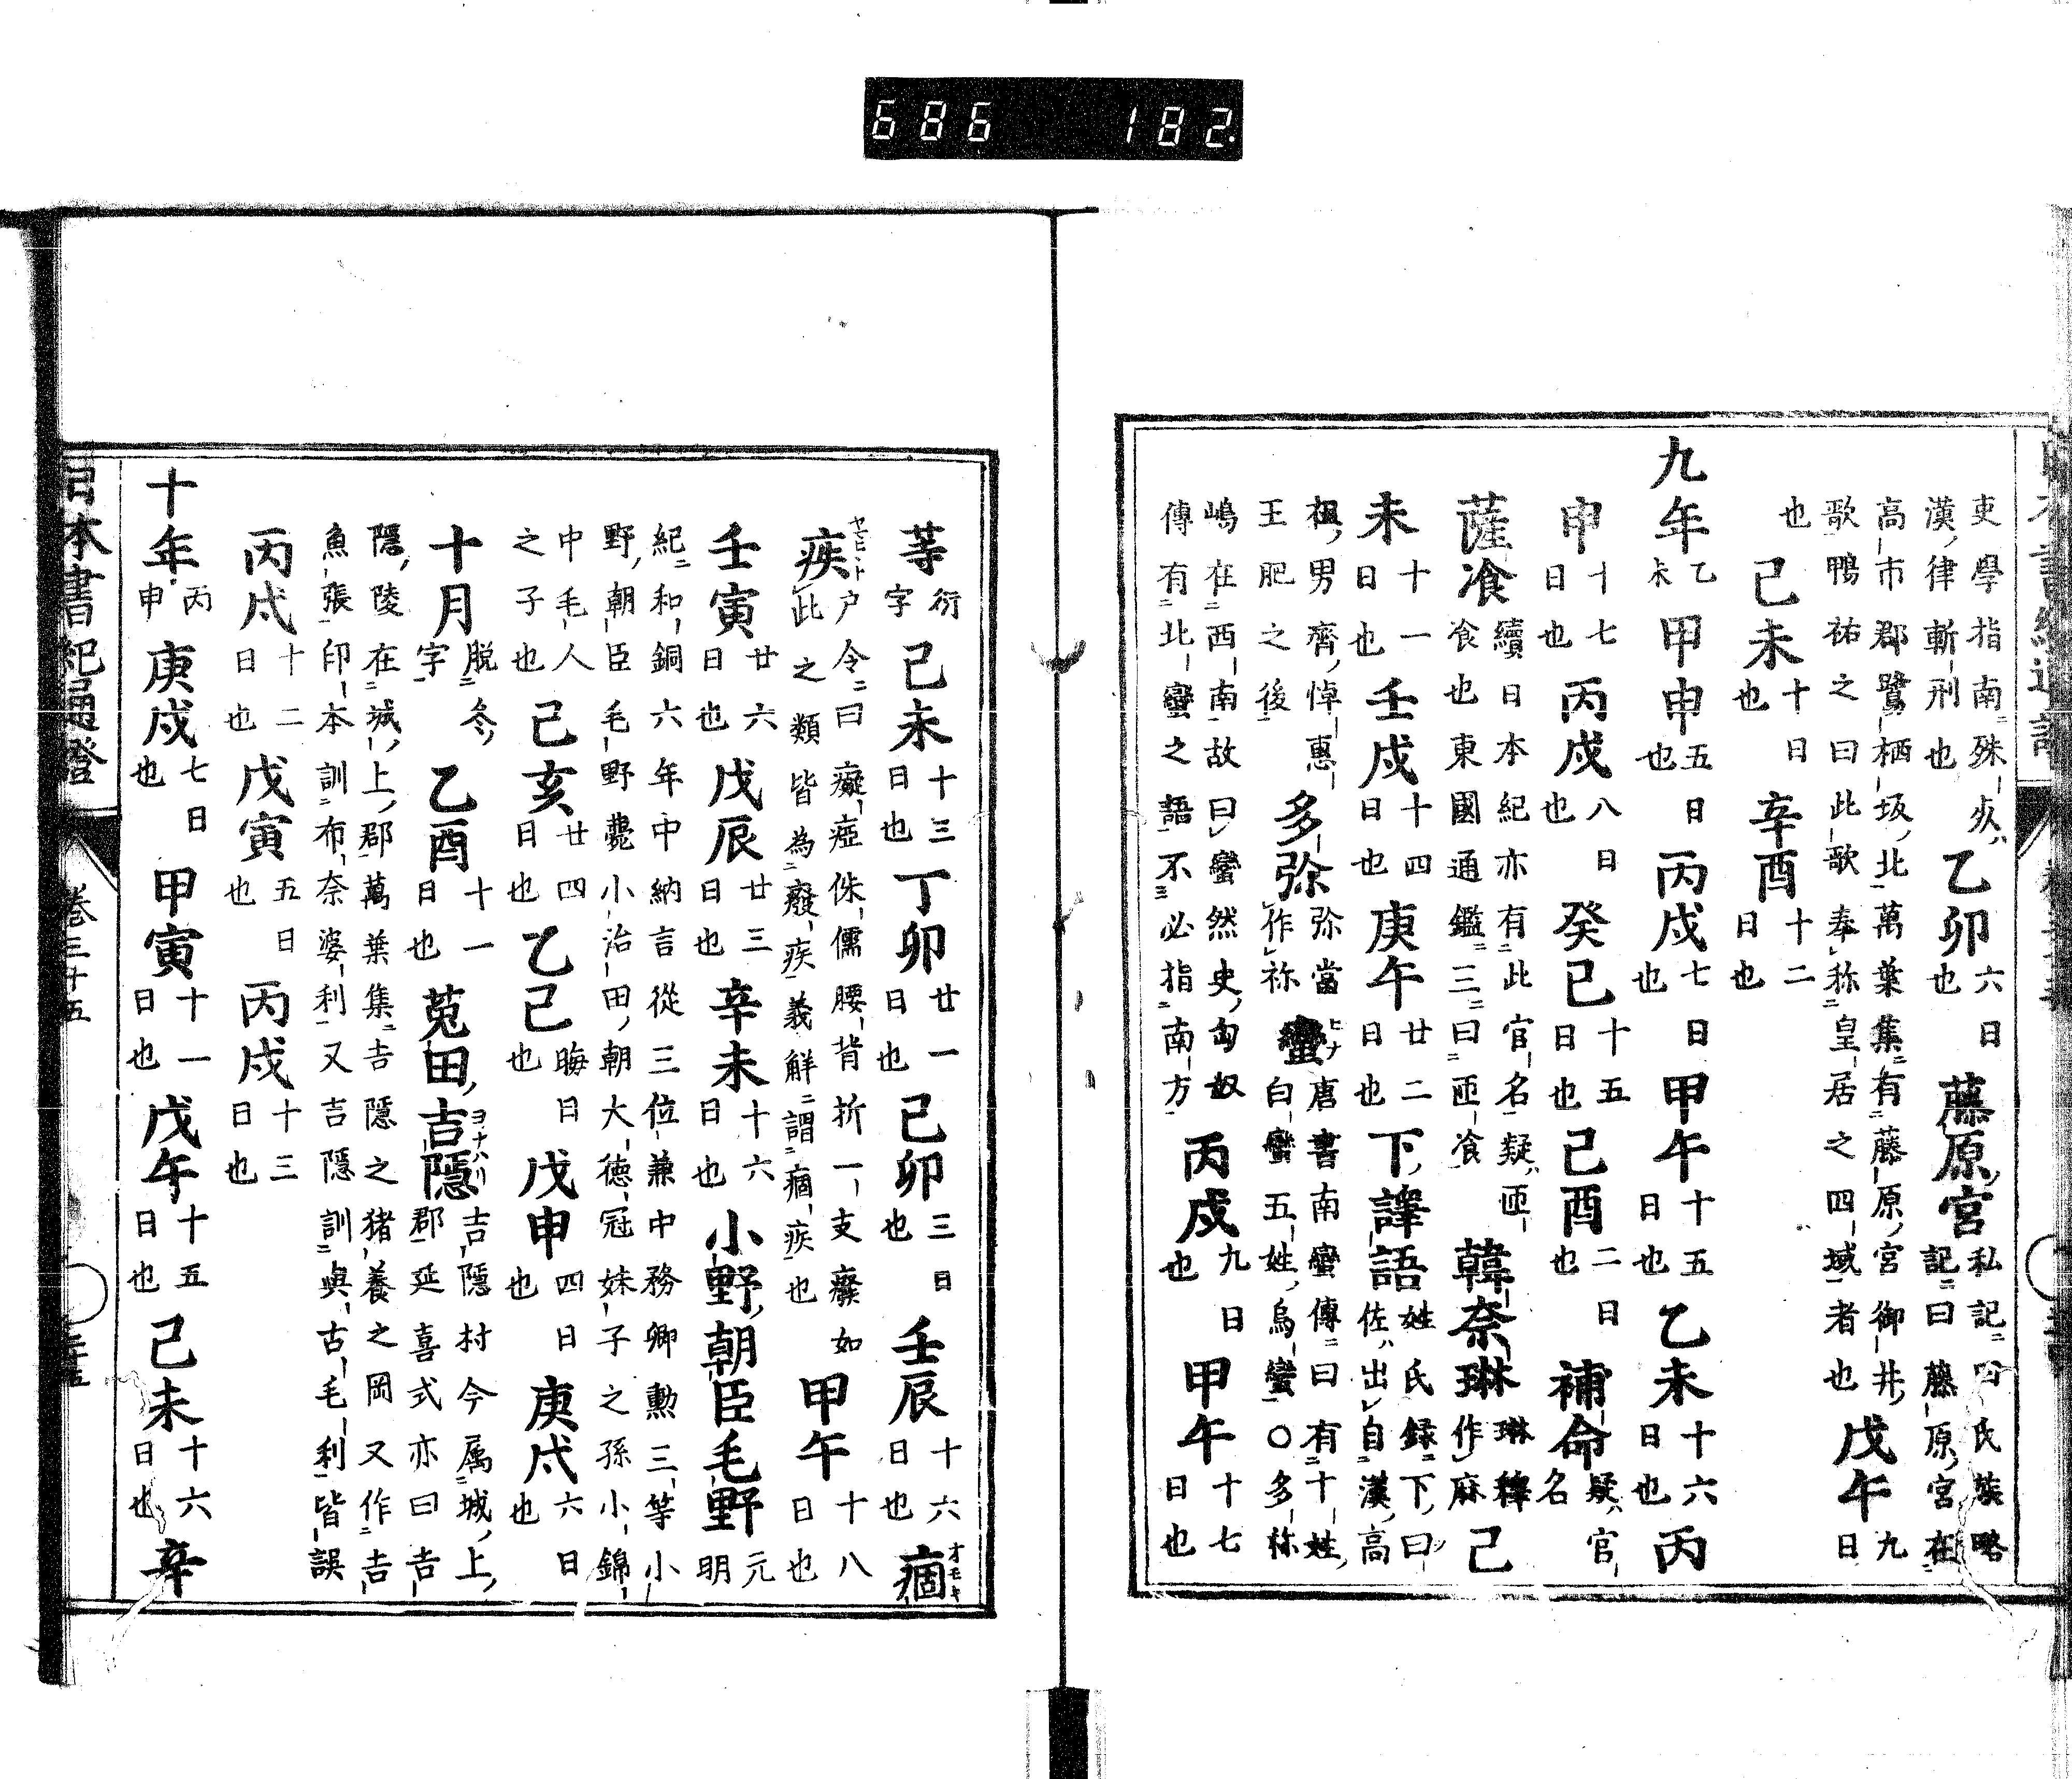 686 182
吏學指南殊火
漢律斬刑也
乙卯 六日也
藤原宮 私記曰氏族略記曰藤原宮在
高市郡鷺栖坂北萬葉集有藤原宮御井
歌鴨祐之曰此歌奉称皇居之四域者也
戊午 九日也
己未 十日也 辛酉 十二日也
九年 乙未 甲申 五日也 丙戌 七日也 甲午 十五日也 乙未 十六日也 丙
申 十七日也 丙戌 八日也 癸巳 十五日也 己酉 二日也 補命 疑官名
薩飡 續日本紀亦有此官名疑匝飡也東國通鑑三曰匝飡 韓奈琳 琳釋作麻 己
未 十一日也 壬戌 十四日也 庚午 廿二日也 下譯語 姓氏録下曰佐出自漢高
祖男齊悼惠王肥之後 多祢 弥當作祢 蠻 ヒナ 唐書南蠻傳曰有十姓白蠻五姓烏蠻○多祢
嶋在西南故曰蠻然史匈奴
傳有北蠻之語不必指南方 丙戌 九日也 甲午 十七日也
等 衍字 己未 十三日也 丁卯 廿一日也 己卯 三日也 壬辰 十六日也 痼 オモキ
疾 ヤヒト 戸令曰癡瘂侏儒腰背折一支癈如此之類皆為癈疾義解謂痼疾也 甲午 十八日也
壬寅 廿六日也 戊辰 廿三日也 辛未 十六日也 小野朝臣毛野 元明
紀和銅六年中納言從三位兼中務卿勲三等小
野朝臣毛野薨小治田朝大徳冠妹子之孫小錦
中毛人之子也 己亥 廿四日也 乙巳 晦日也 戊申 四日也 庚戌 六日也
十月 脱冬字 乙酉 十一日也 菟田吉隱 ヨナハリ 吉隱村今属城上郡延喜式亦曰吉
隱陵在城上郡萬葉集吉隱之猪養之岡又作吉
魚張印本訓布奈婆利又吉隱訓與古毛利皆誤
丙戌 十二日也 戊寅 五日也 丙戌 十三日也
十年 丙申 庚戌 七日也 甲寅 十一日也 戊午 十五日也 己未 十六日也 辛
日本書紀通證 卷三十五